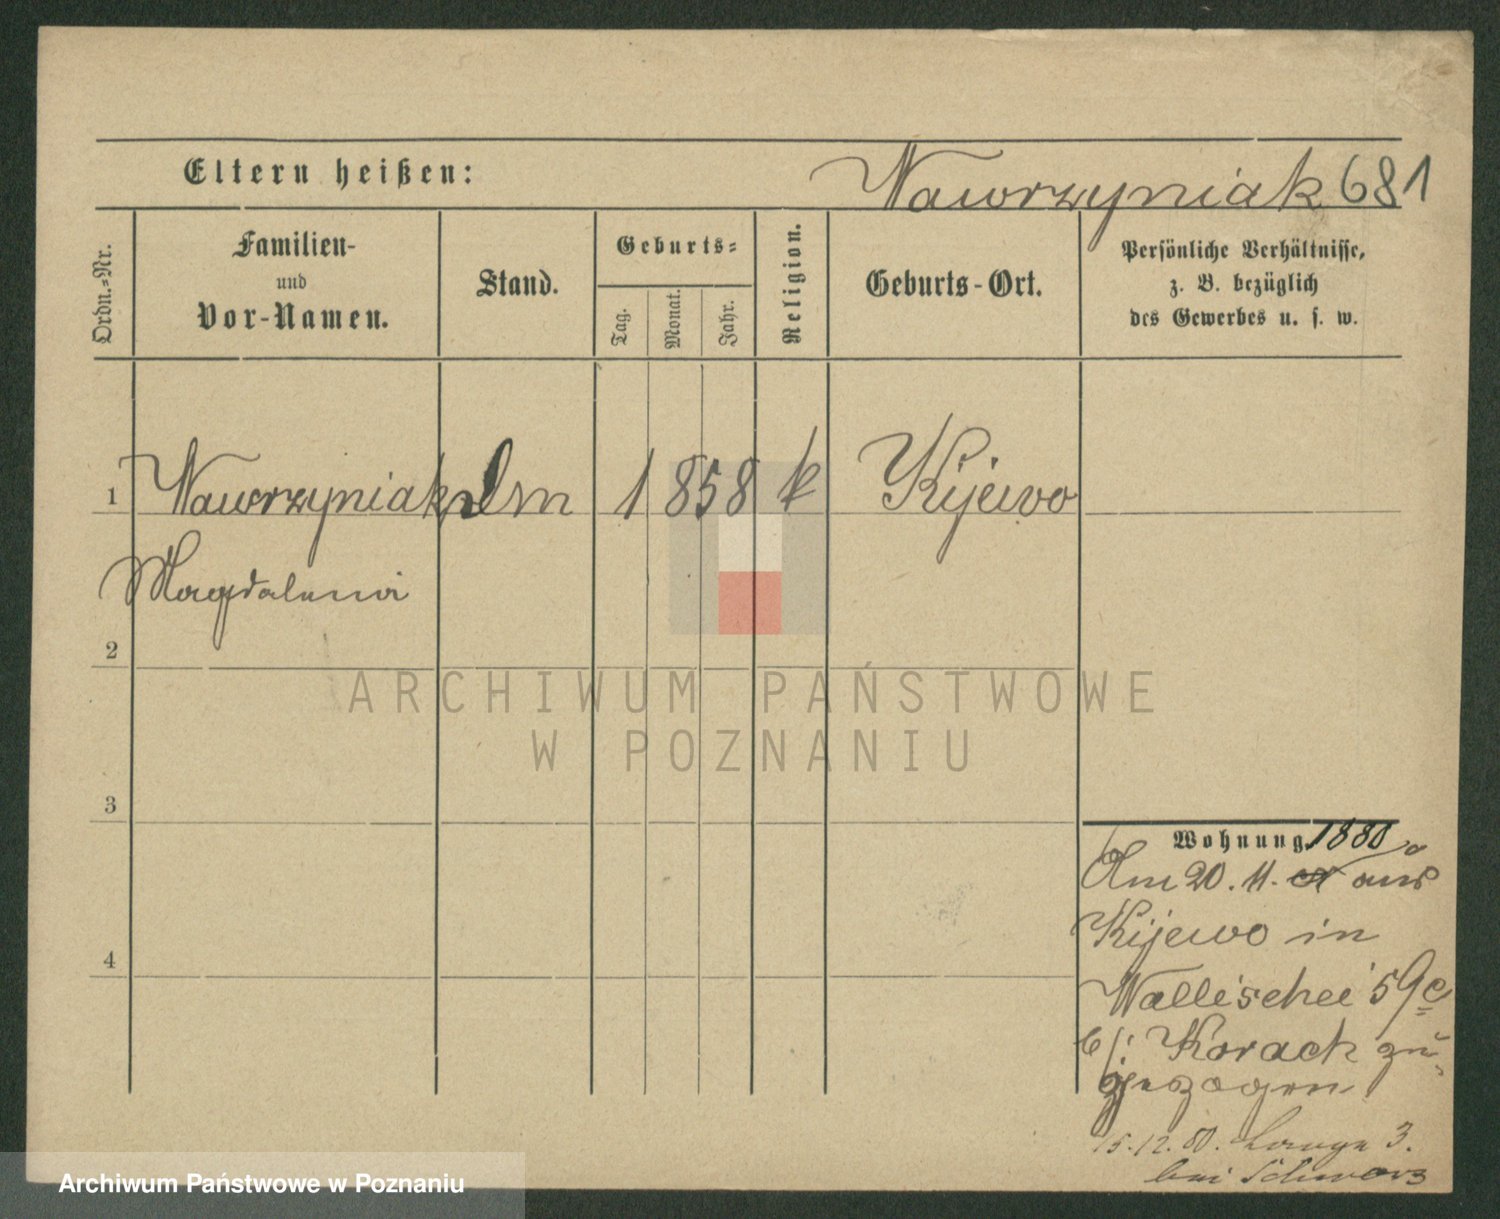 Eltern heißen:
Wawrzyniak 681
Ordn.-Nr.
Familien-
und
Vor-Namen.
Stand.
Geburts-
Tag.
Monat.
Jahr.
Religion.
Geburts-Ort.
Persönliche Verhältnisse,
z. B. bezüglich
des Gewerbes u. s. w.
1 Wawrzyniak 1858 k Kijewo
Magdalena
2
3
4
Wohnung. 1880
Am 20. 11. aus
Kijewo in
Wallischei 59c
b/: Korach zu-
gezogen
15.12.80. Lange 3.
bei Schwarz
ARCHIWUM PAŃSTWOWE
W POZNANIU
Archiwum Państwowe w Poznaniu